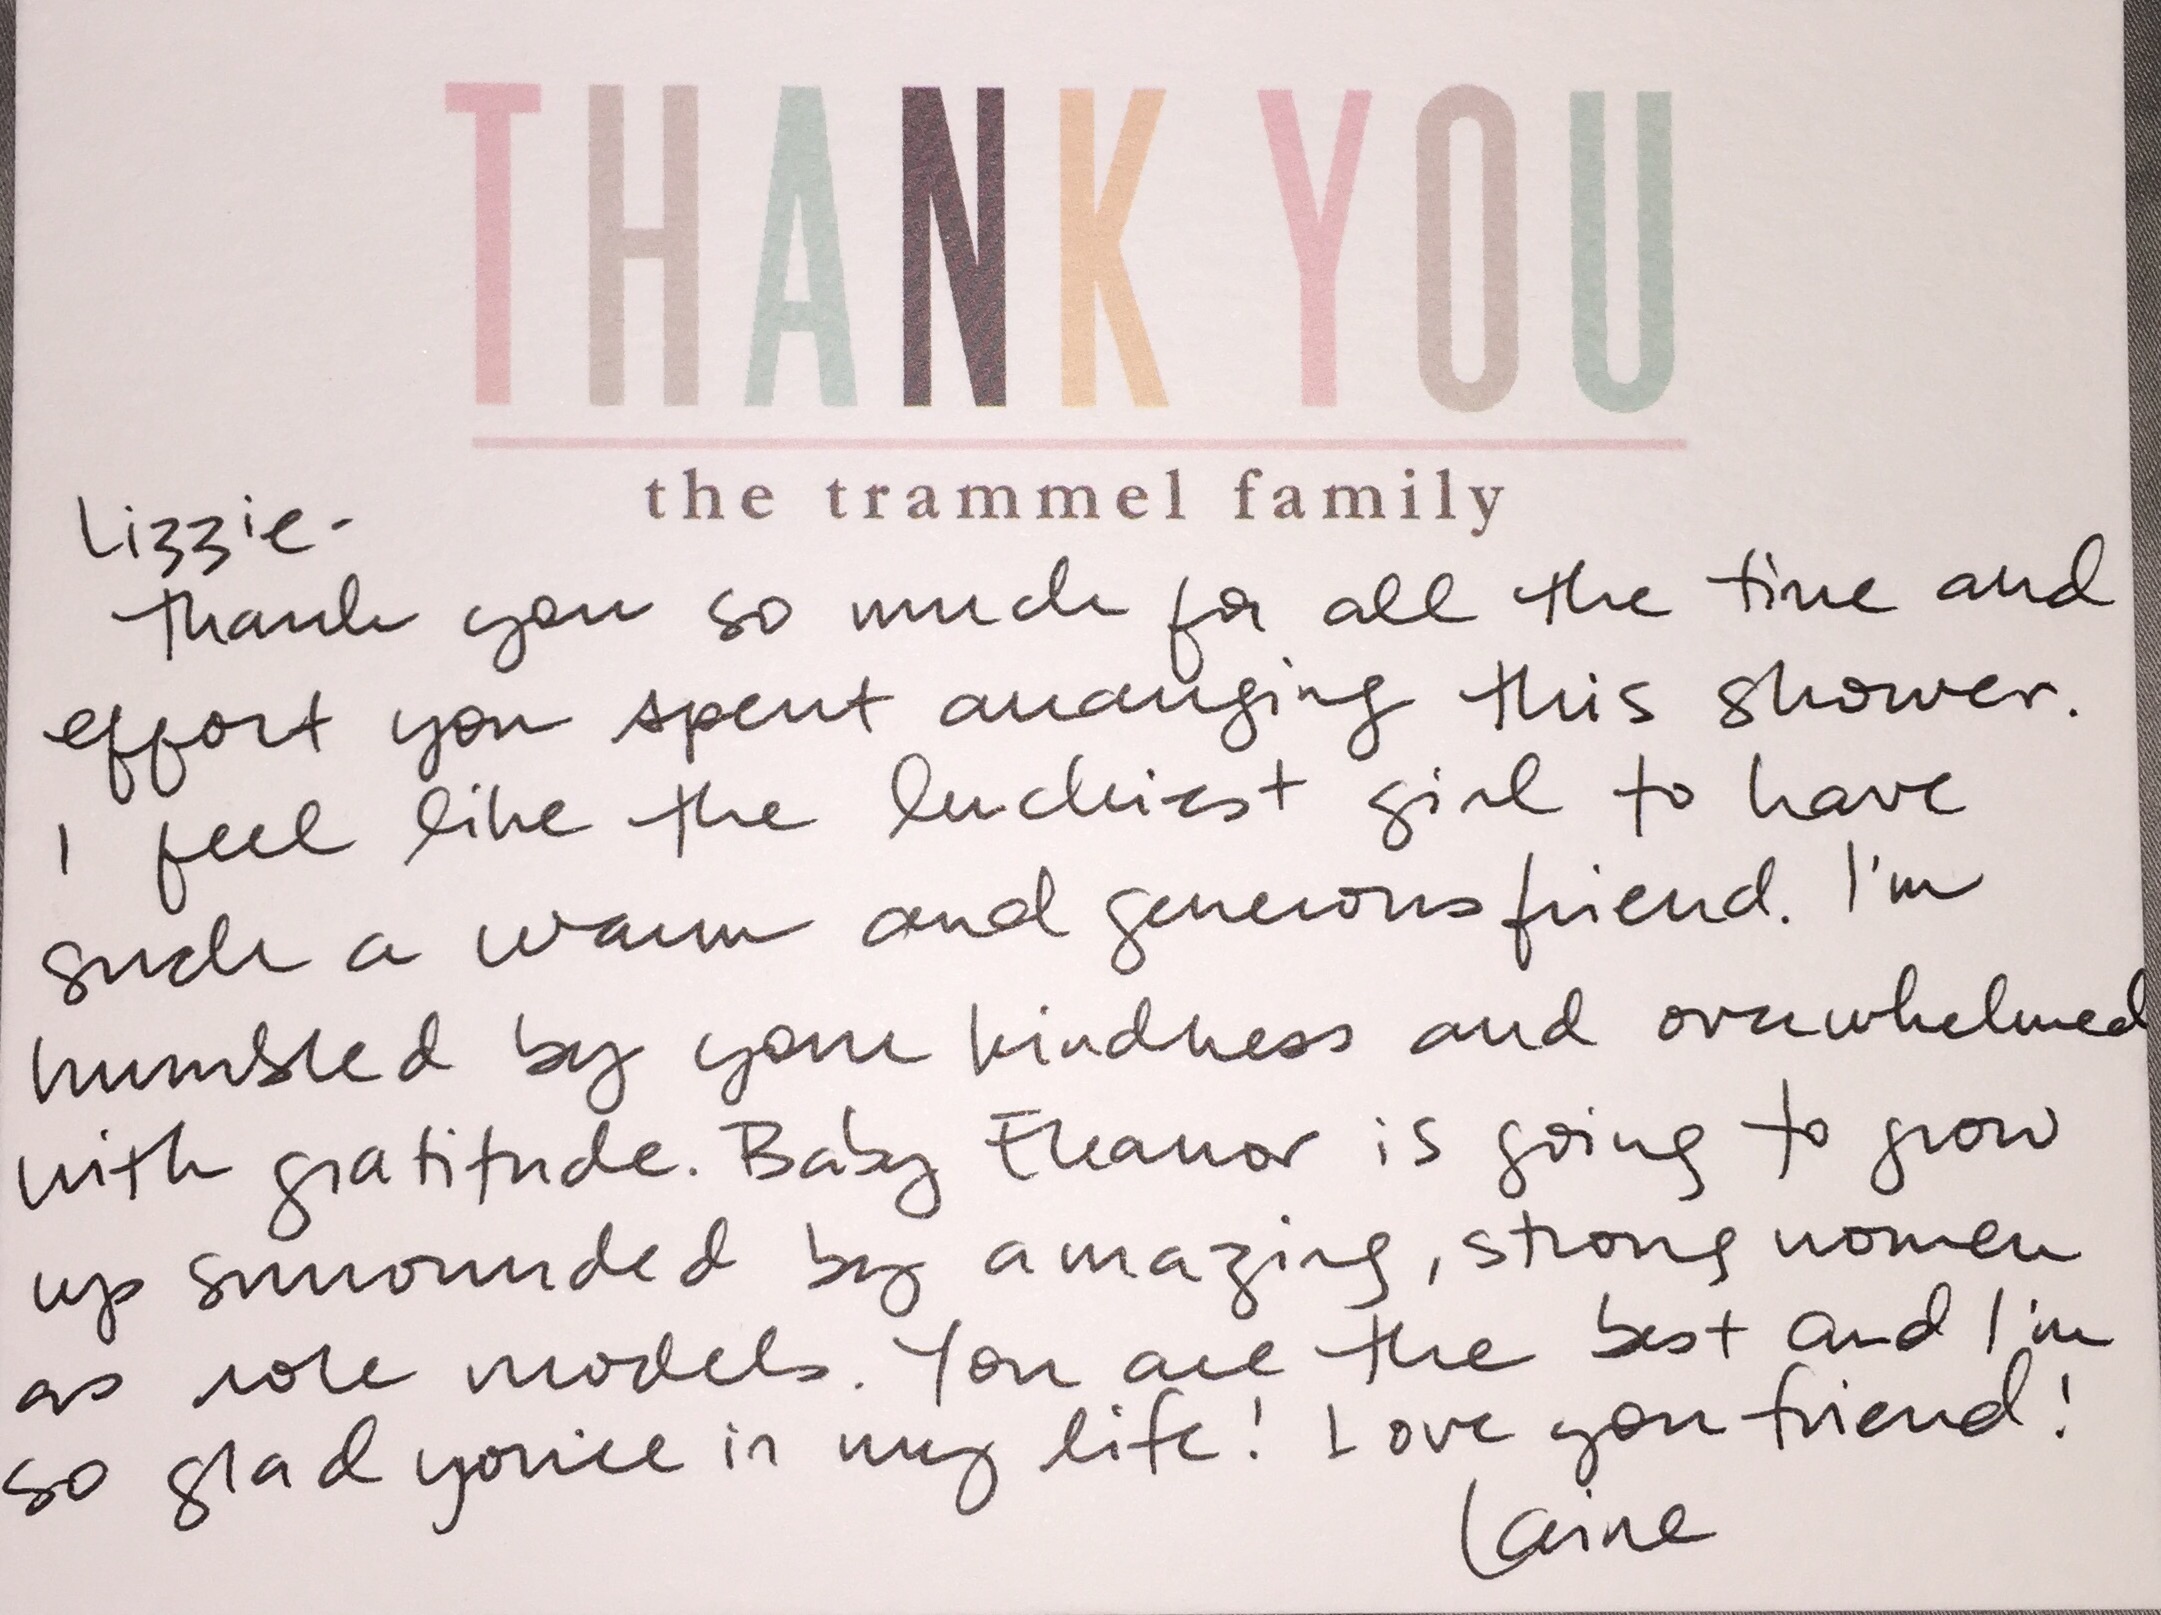 THANK YOU
the trammel family
Lizzie-
Thank you so much for all the time and
effort you spent arranging this shower.
I feel like the luckiest girl to have
such a warm and generous friend. I'm
humbled by your kindness and overwhelmed
with gratitude. Baby Eleanor is going to grow
up surrounded by amazing, strong women
as role models. You are the best and I'm
so glad you're in my life! Love you friend!
Laine